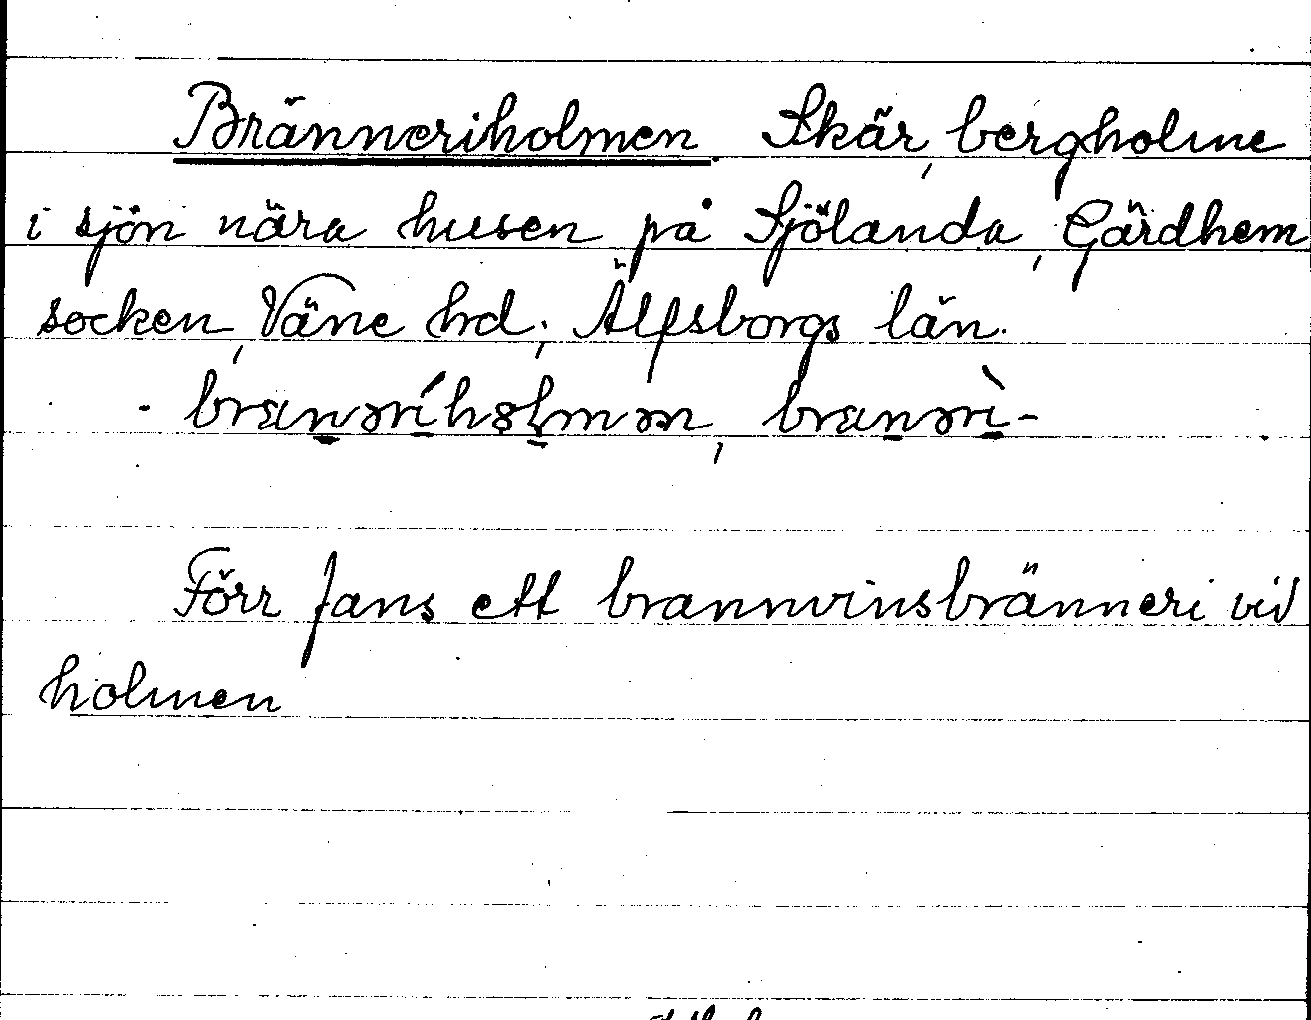 Bränneriholmen. Skär, bergholme
i sjön nära husen på Sjölanda, Gärdhem
socken, Väne hd, Älfsborgs län.
Förr fans ett brannvinsbränneri vid
holmen